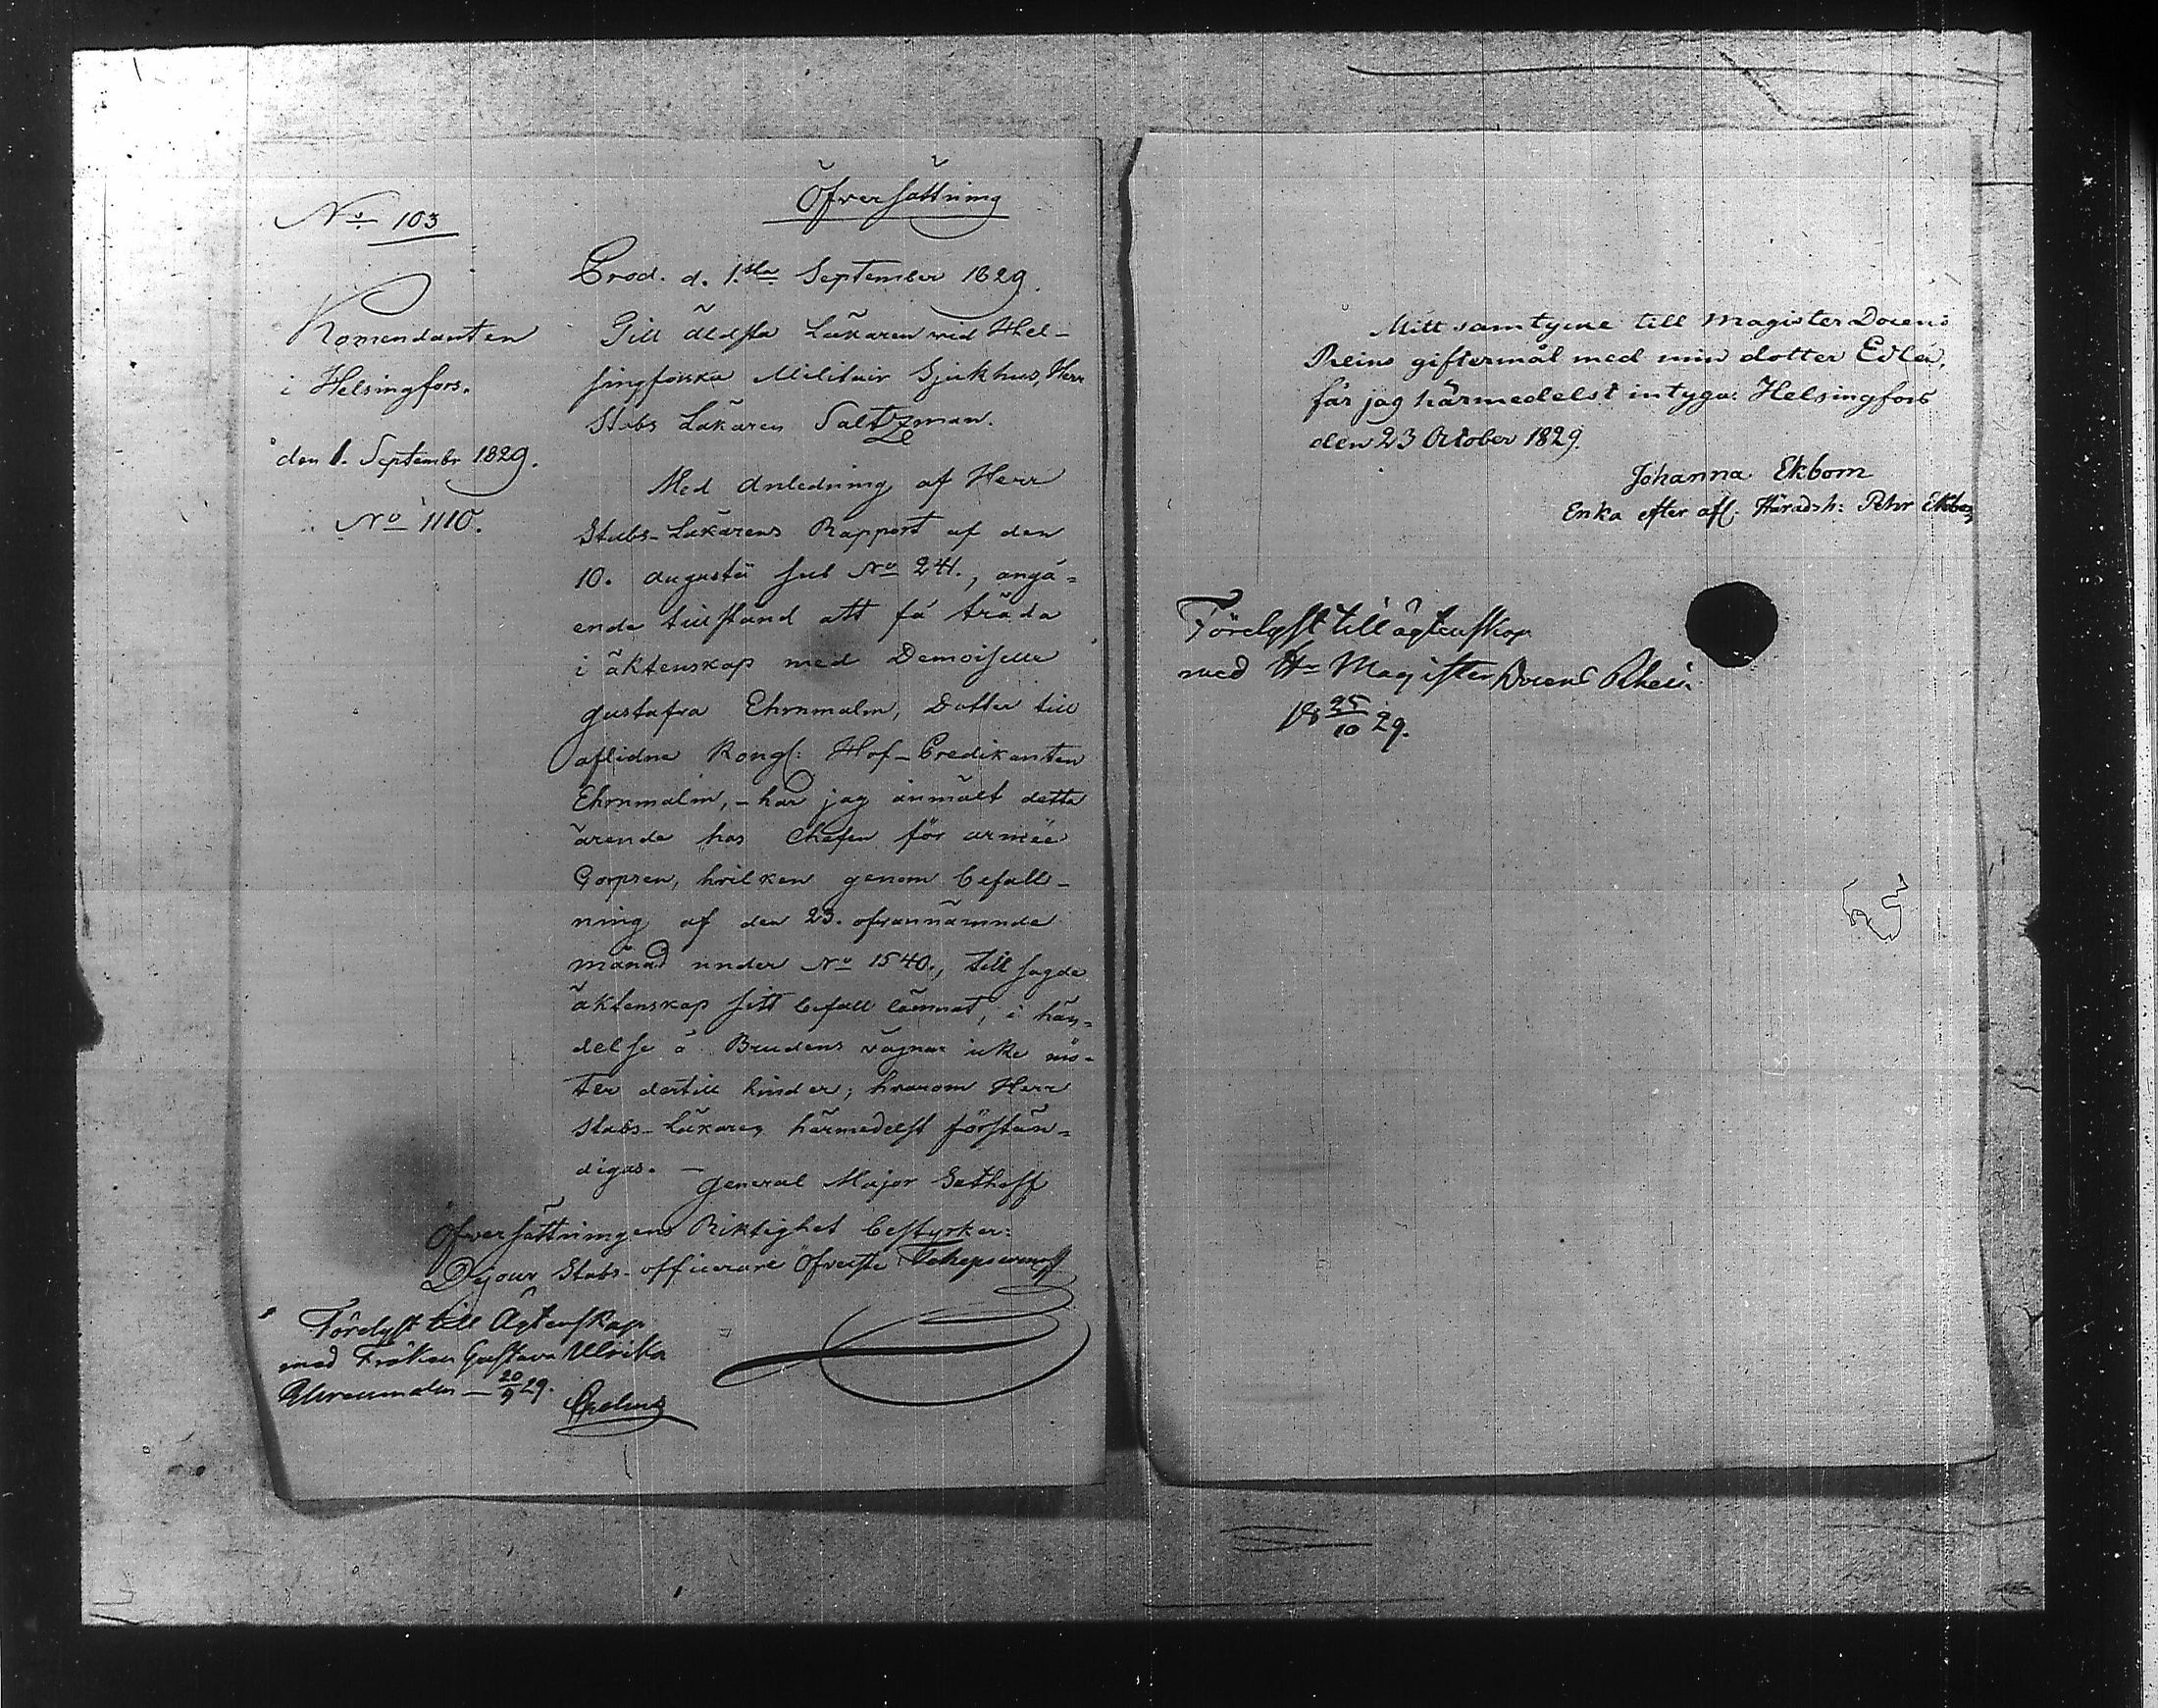 No 103
Öfversättning
Komendanten
i Helsingfors.
den 1. Septembr 1829.
No 1110.
Prod. d. 1sta September 1829.
Till äldsta Läkaren wid Hel-
singforska Militair Sjukhus, Herr
Stabs Läkaren Saltzman.
Med anledning af Herr
Stabs-Läkarens Rapport af den
10. augusti sub No 241., angå=
ende tillstånd att få träda
i äktenskap med Demoiselle
Gustafva Ehrnmalm, Dotter till
aflidne Kongl: Hof-Predikanten
Ehrnmalm, - har jag anmält detta
ärende hos Chefen för armée
Corpsen, hvilken genom befall-
ning af den 23. ofvannämnde
månad under No 1540., till sagde
äktenskap sitt bifall lämnat, i hän=
delse å Brudens vägnar icke mö-
ter dertill hinder; hvarom Herr
Stabs-Läkaren härmedelst förstän=
digas. -
General Major Gethoff
Öfversättningens Riktighet bestyrker:
Dejour Stabs-officerare Öfverste
Förelyst till Ägtenskap
med Fröken Gustava Ulrika
Ehrenmalm - 20/9 29.
Mitt samtycke till Magister Docens
Reins giftermål med min dotter Edla,
får jag härmedelst intyga: Helsingfors
den 23 October 1829.
Johanna Ekbom
Enka efter afl. Häradsh: Petr Ekbom
Förelyst till ägtenskap
med Hr Magister Docens Rhein
18 25/10 29.